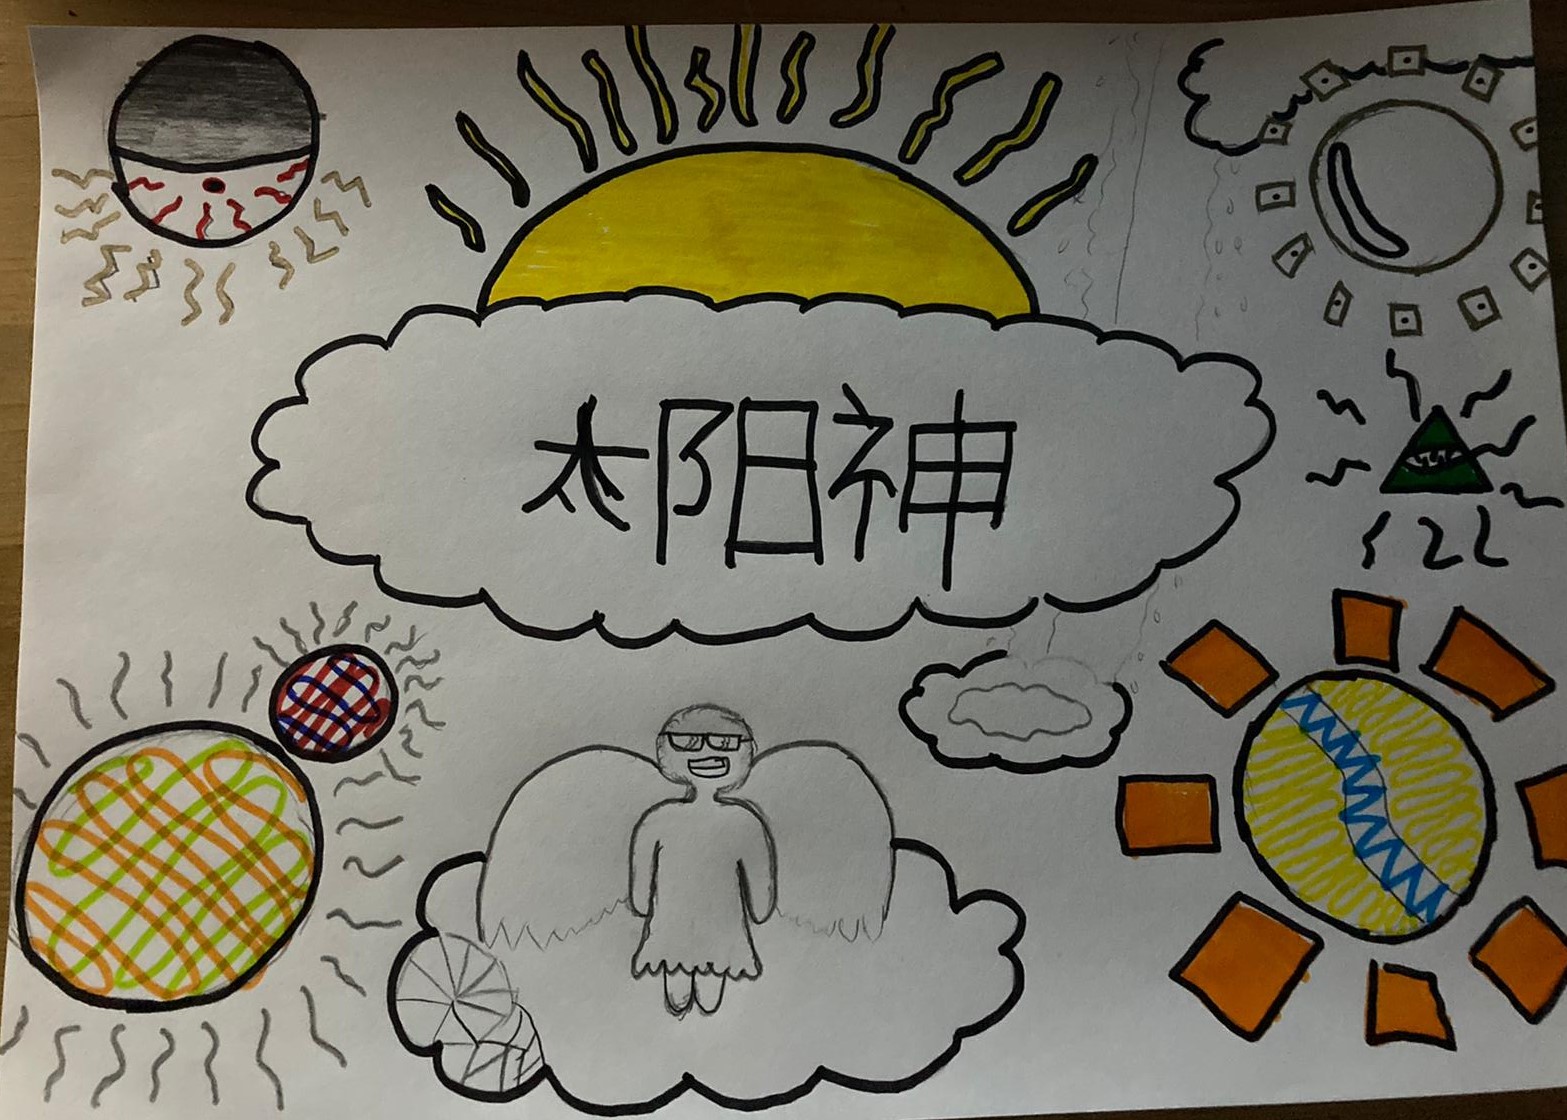 太阳神